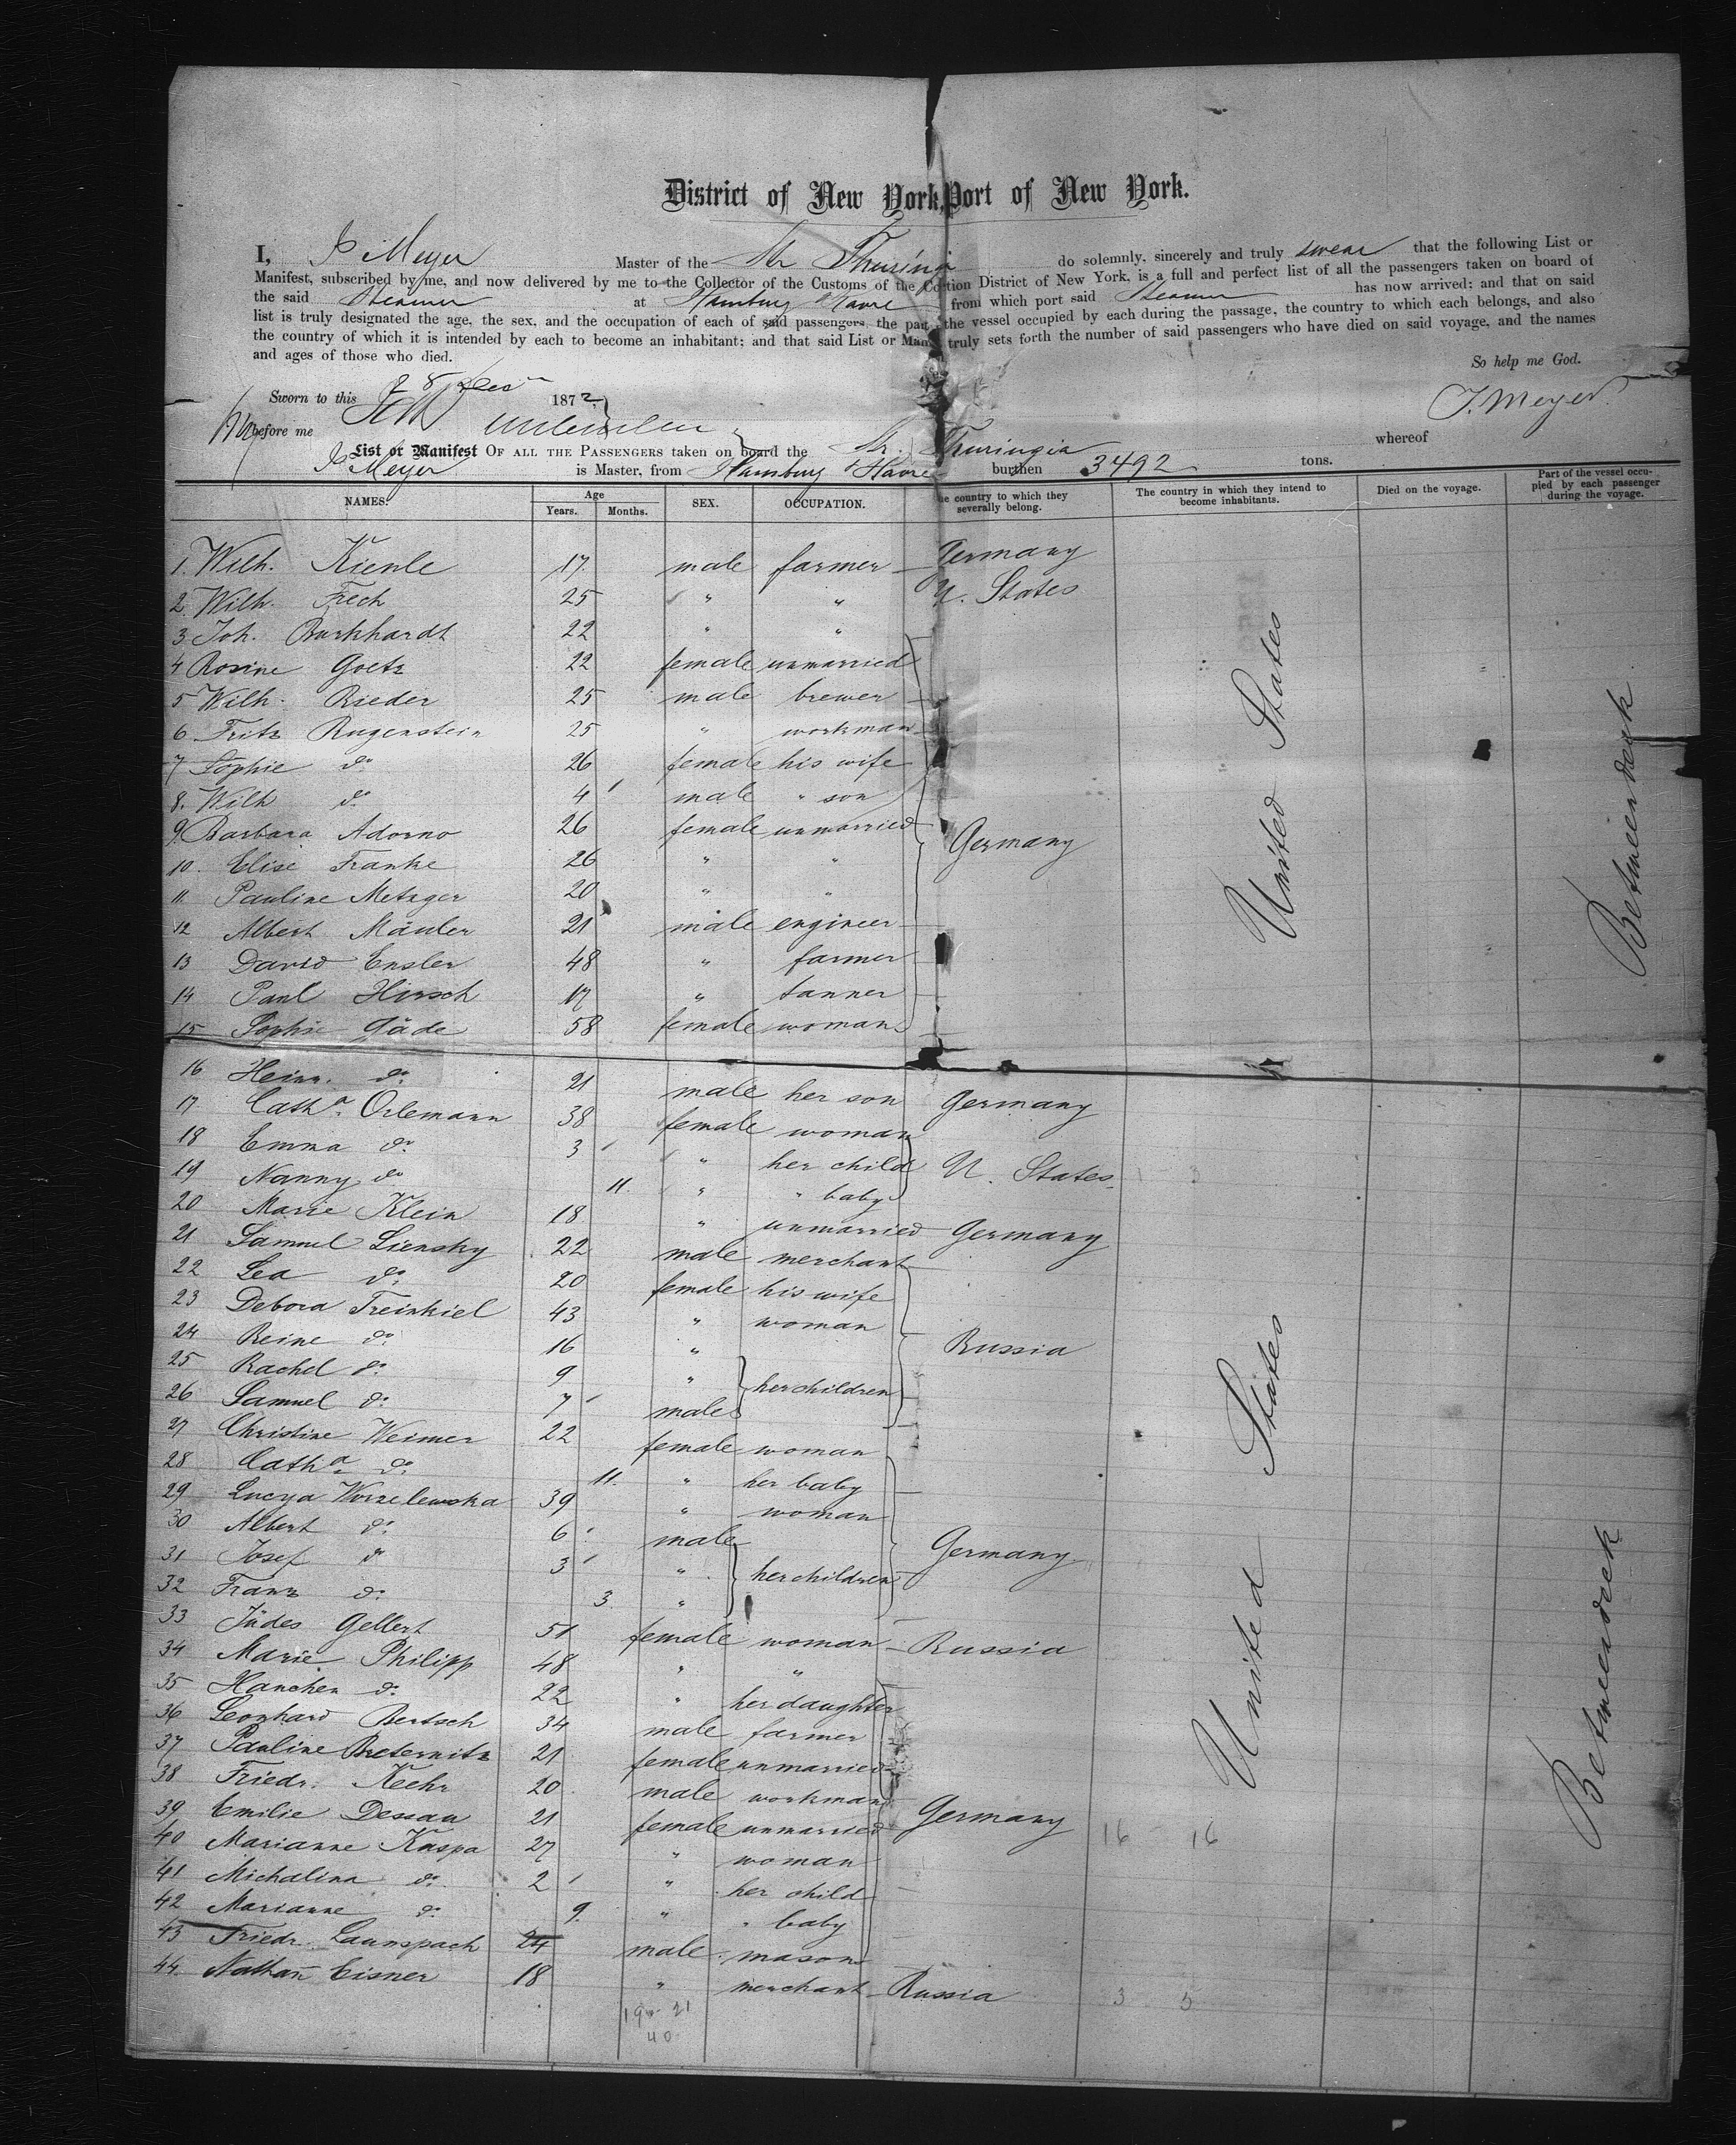 District of New York, Port of New York.
I, Meyer Master of the Str Thuringia do solemnly, sincerely and truly swear that the following List or
Manifest, subscribed by me, and now delivered by me to the Collector of the Customs of the Collection District of New York, is a full and perfect list of all the passengers taken on board of
the said Steamer at Hamburg & Havre from which port said Steamer has now arrived: and that on said
list is truly designated the age, the sex, and the occupation of each of said passengers, the part of the vessel occupied by each during the passage, the country to which each belongs, and also
the country of which it is intended by each to become an inhabitant; and that said List or Manifest truly sets forth the number of said passengers who have died on said voyage, and the names
and ages of those who died.
So help me God.
Sworn to this 28 Dec 1872
J. Meyer.
before me
List or Manifest OF ALL THE PASSENGERS taken on board the Str. Thuringia whereof
Meyer is Master, from Hamburg & Havre burthen 3492 tons.
NAMES. Age Years. Months. SEX. OCCUPATION. The country to which they severally belong. The country in which they intend to become inhabitants. Died on the voyage. Part of the vessel occupied by each passenger during the voyage.
1. Wilh. Kienle 17 male farmer Germany
2. Wilh. Frech 25 " " U. States
3 Joh. Burkhardt 22 " "
4 Rosine Goetz 22 female unmarried
5 Wilh. Rieder 25 male brewer
6 Fritz Rugenstein 25 " workman
7 Sophie do 26 female his wife
8. Wilh do 4 male " son
9. Barbara Adorno 26 female unmarried Germany
10. Elise Franke 26 " "
11. Pauline Metzger 20 " "
12 Albert Mäuler 21 male engineer
13 David Ensler 48 " farmer
14 Paul Hirsch 17 " tanner
15 Sophie Gäde 58 female woman
16 Heinr. do 21 male her son Germany
17. Catha. Orlemann 38 female woman
18 Emma do 3 " her child U. States
19 Nanny do 11. " " baby
20 Marie Klein 18 " unmarried Germany
21 Samuel Liensky 22 male merchant
22 Lea do 20 female his wife
23 Debora Treinkiel 43 " woman
24 Reine do 16 " Russia
25 Rachel do 9 " her children
26 Samuel do 7 male
27 Christine Weimer 22 female woman
28 Catha do 11. " her baby
29 Lucya Worzelewska 39 " woman
30 Albert do 6 male Germany
31 Josef do 3 " her children
32 Franz do 3 "
33 Jüdes Gellert 51 female woman Russia
34 Marie Philipp 48 " "
35 Hanchen do 22 " her daughter
36 Leonhard Bertsch 34 male farmer
37 Pauline Breternitz 21 female unmarried
38 Friedr. Kechr 20 male workman
39 Emilie Dessau 21 female unmarried Germany 16 16
40 Marianne Kaspa 27 " woman
41 Michalina do 2 " her child
42 Marianne do 9. " " baby
43 Friedr. Launspach 24 male mason
44. Nathan Eisner 18 " merchant Russia 3 5
19 21
40
United States
Betweendeck
United States
Betweendeck